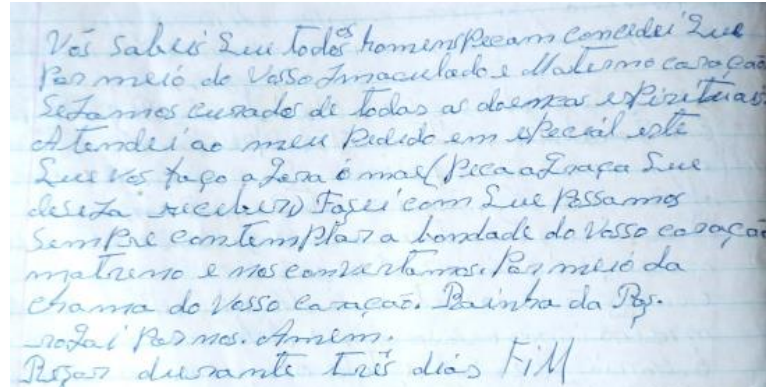 Vós sabeis Que todos os homens Pecam concedei Que
Por meio do Vosso Imaculado e Materno coração
Sejamos curados de todas as doenças espirituais.
Atendei ao meu Pedido em especial este
Que vos faço agora ó mae (Peca a Graça Que
deseja receber) Fazei com Que Possamos
Sempre contemplar a bondade do Vosso coração
matreno e nos convertamos. Por meio da
chama do Vosso coração. Rainha da Paz.
rogai Por nos. Amem.
Rezar durante três dias FiM